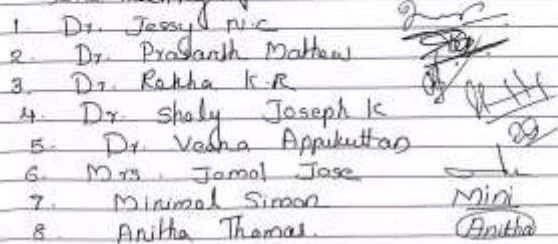 1. Dr. Jessy N.C
2. Dr. Prasanth Mathew
3. Dr. Rekha K.R
4. Dr. Shaly Joseph K
5. Dr. Veena Appukuttan
6. Mrs. Jomol Jose
7. Minimol Simon Mini
8. Anitha Thomas. Anitha